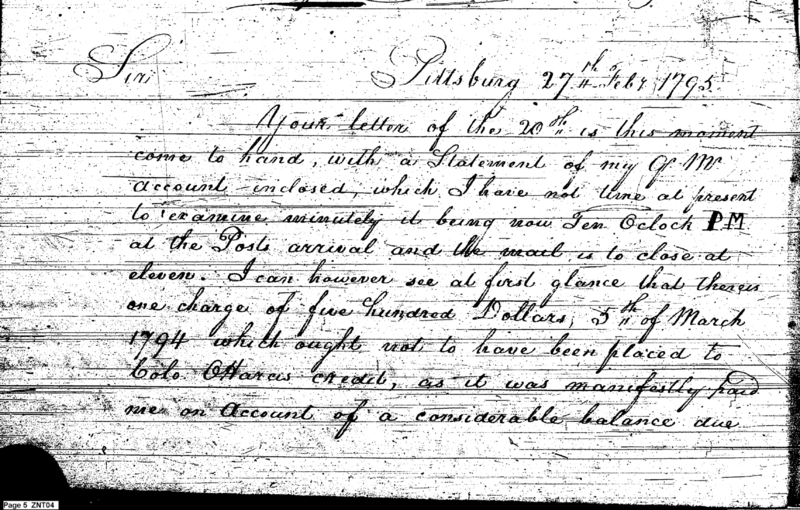 Sir Pittsburg 27th Feby 1795
Your letter of the 20th is this moment
come to hand, with a Statement of my Qr Mr
account inclosed, which I have not time at present
to examine minutely it being now Ten Oclock PM
at the Posts arrival and the mail is to close at
eleven. I can however see at first glance that there is
one charge of five hundred Dollars, 5th of March
1794 which ought not to have been placed to
Colo. OHaras credit, as it was manifestly paid
me on Account of a considerable balance due
Page 5 ZNT04